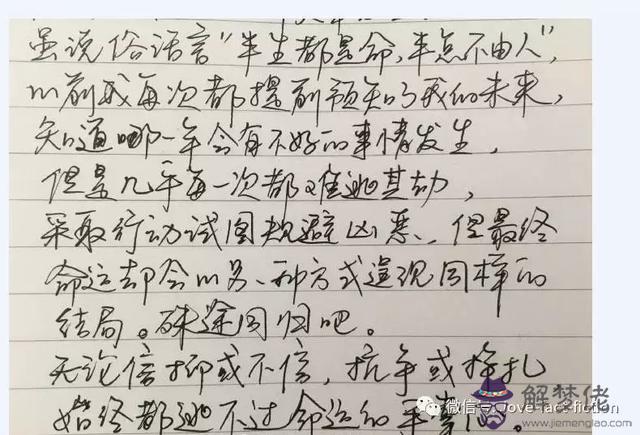 虽说俗话言“半生都是命，半点不由人”，
以前我每次都提前预知了我的未来，
知道哪一年会有不好的事情发生，
但是几乎每一次都难逃其劫，
采取行动试图规避凶恶、但最终
命运却会以另一种方式呈现同样的
结局。殊途同归吧。
无论信抑或不信，抗争或挣扎
始终都逃不过命运的
微信号: love-fact-fiction
解梦佬
www.jiemenglao.com